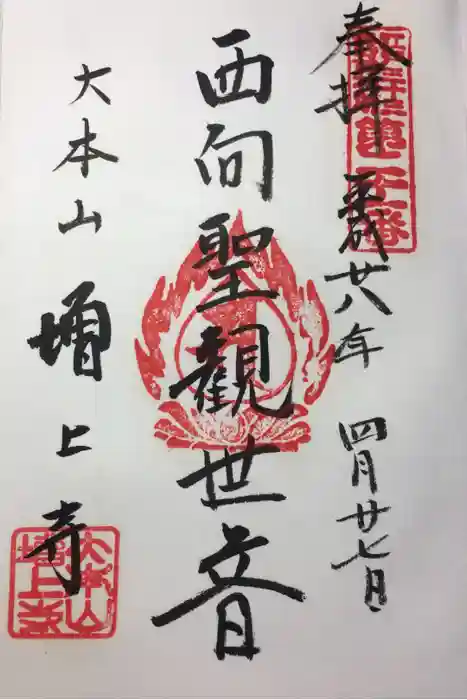 奉拝 平成廿八年 四月廿七日
西向聖觀世音
大本山 増上寺
大本山
増上寺